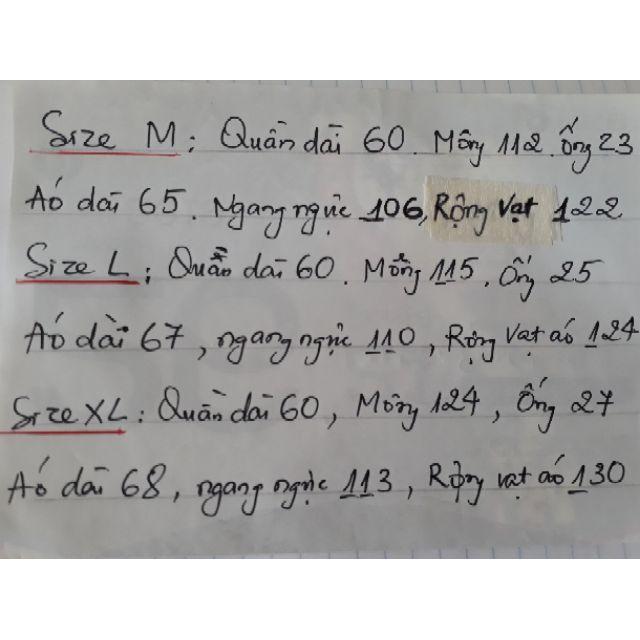 Size M: Quần dài 60. Mông 112. Ống 23
Áo dài 65. Ngang ngực 106, Rộng Vạt 122
Size L: Quần dài 60. Mông 115. Ống 25
Áo dài 67, ngang ngực 110, Rộng Vạt áo 124
Size XL: Quần dài 60, Mông 124, Ống 27
Áo dài 68, ngang ngực 113, Rộng vạt áo 130